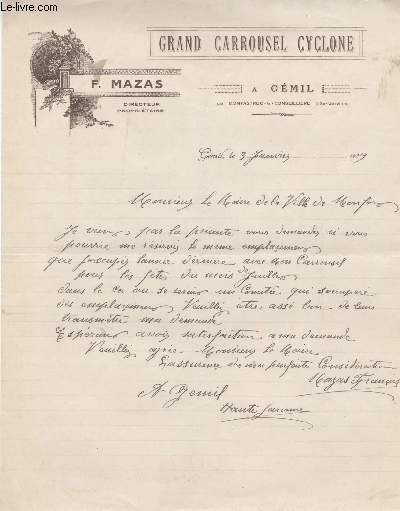 www.le-livre.com
GRAND CARROUSEL CYCLONE
F. MAZAS
DIRECTEUR
PROPRIÉTAIRE
A GÉMIL
PAR MONTASTRUC-LA-CONSEILLÈRE (Hte-Garonne)
le 3 Janvier 19
Monsieur Le Maire de la Ville de
Je viens par la présente vous demander si vous
pourriez me réserver le même emplacement
que j'occupés l'année dernière avec mon Carrousel
pour les fêtes du mois de Juillet
dans le cas où se serait un Comité qui s'occupe
des emplacement Veuillez etre assé bon de leur
transmettre ma demande
Espérant avoir satisfaction a ma demande
Veuillez agréer Monsieur le Maire
L'assurance de mon parfaite Considération
Mazas François
A Gemil
Haute Garonne